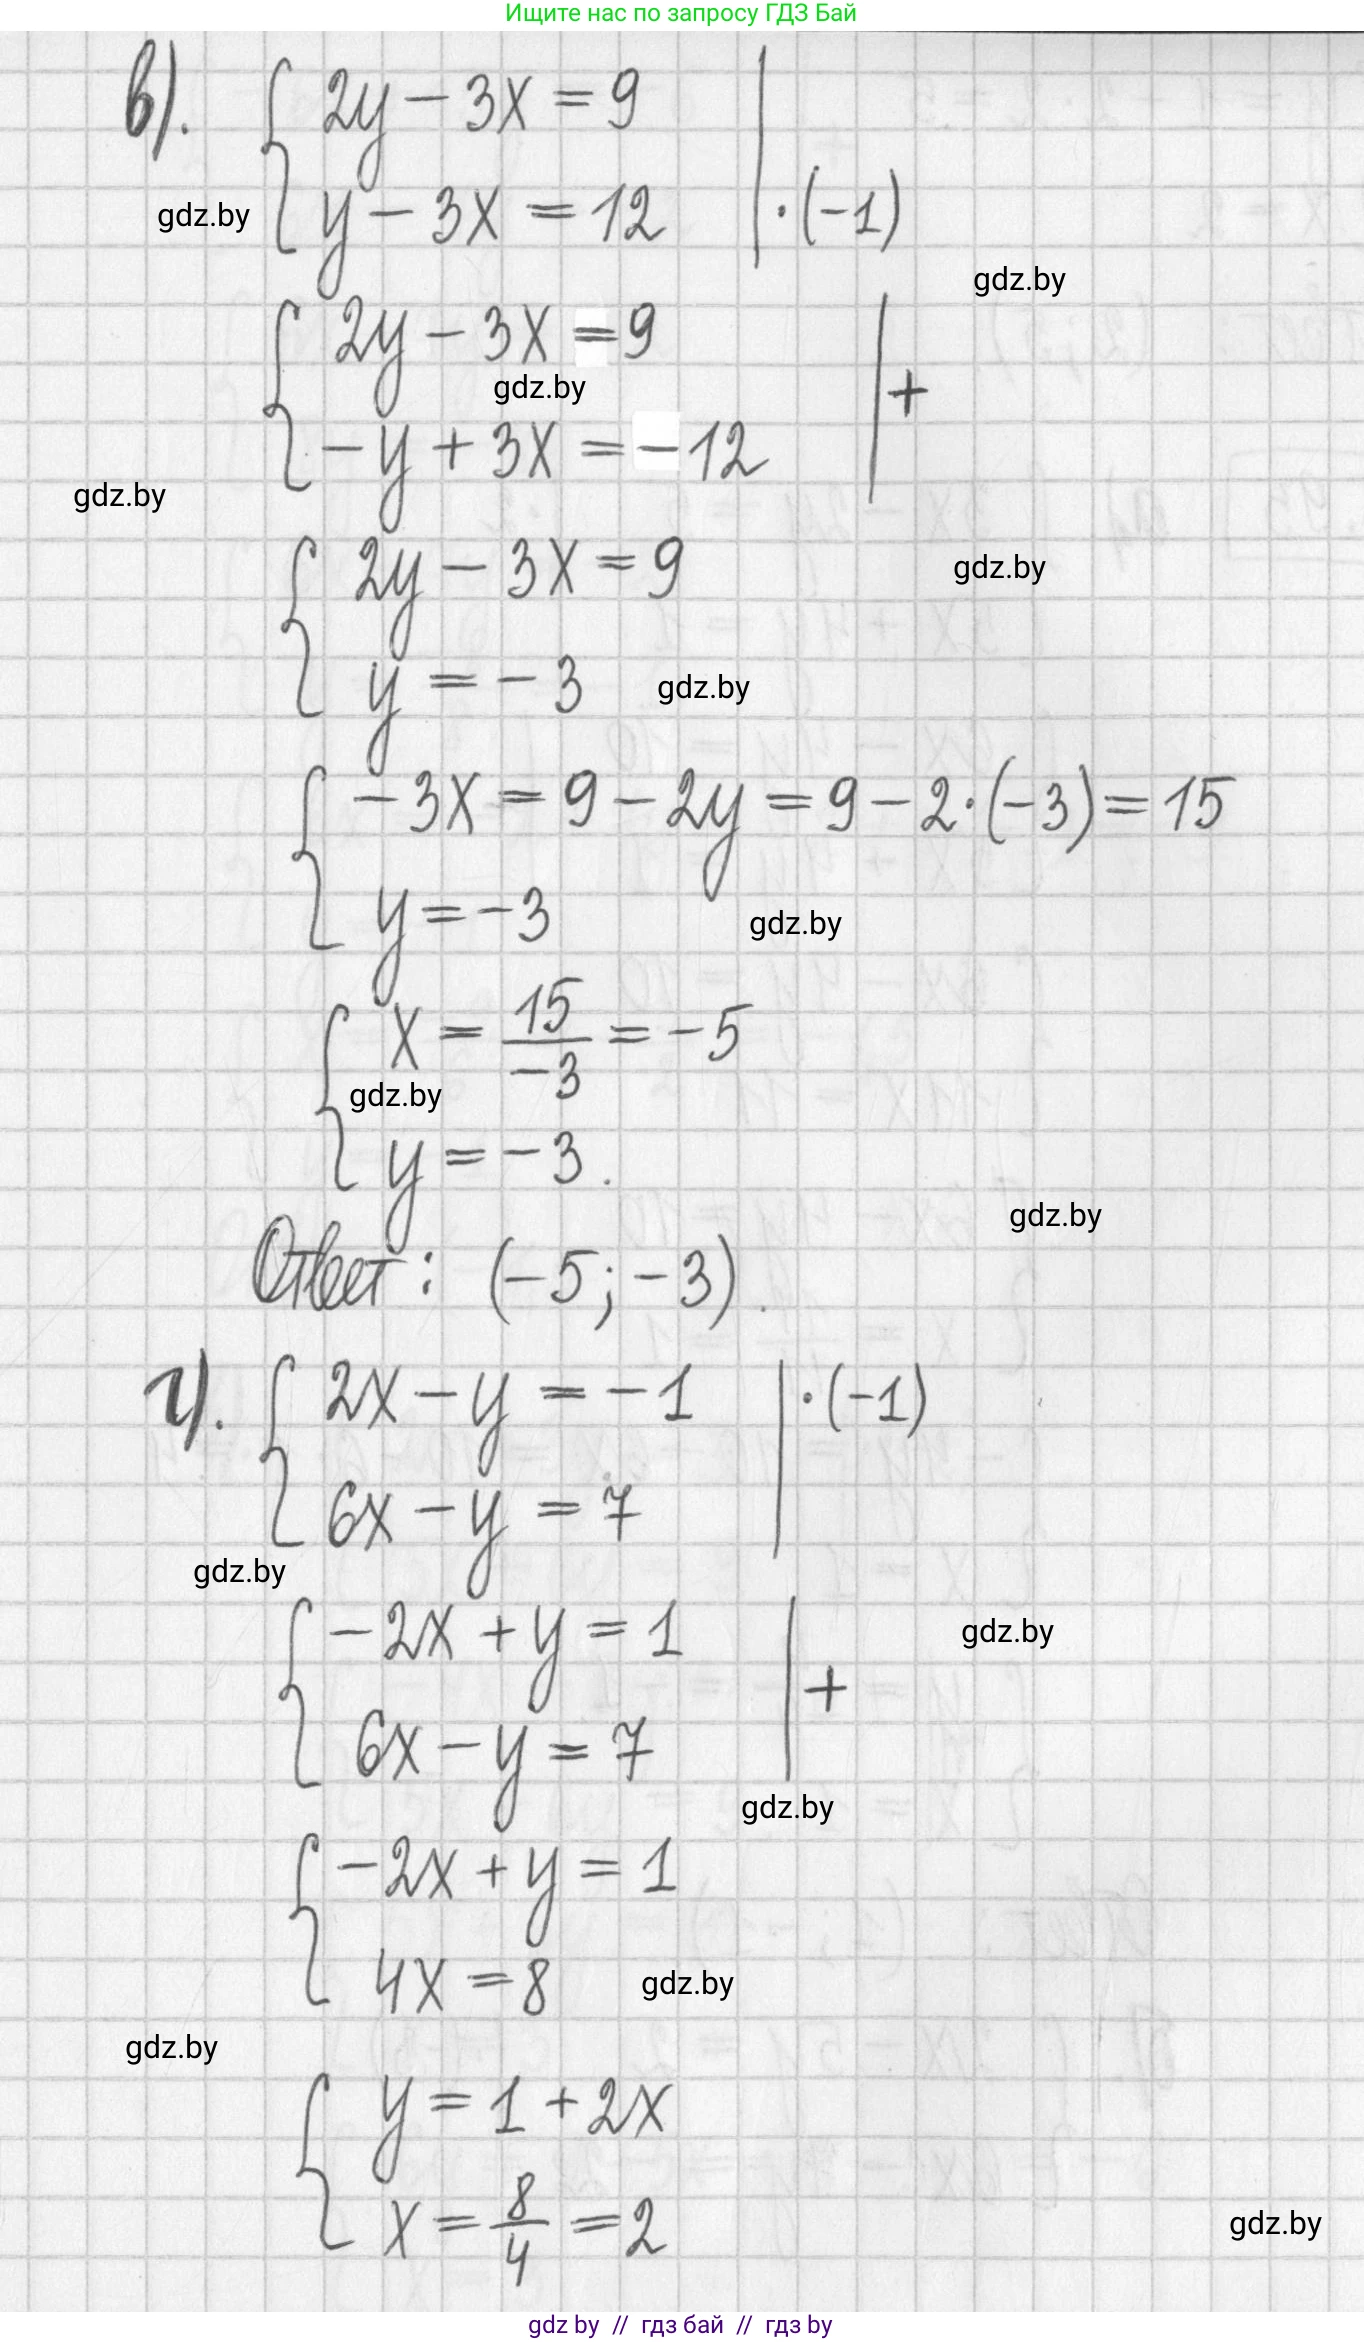 Ищите нас по запросу ГДЗ Бай
в). 2y - 3x = 9
y - 3x = 12 | ·(-1)
gdz.by
gdz.by
2y - 3x = 9
gdz.by
+
-y + 3x = -12
gdz.by
2y - 3x = 9
gdz.by
y = -3
gdz.by
-3x = 9 - 2y = 9 - 2·(-3) = 15
y = -3
gdz.by
x = 15/-3 = -5
gdz.by
y = -3.
gdz.by
Ответ: (-5; -3).
г). 2x - y = -1 | ·(-1)
6x - y = 7
gdz.by
-2x + y = 1
gdz.by
+
6x - y = 7
gdz.by
-2x + y = 1
4x = 8
gdz.by
gdz.by
y = 1 + 2x
x = 8/4 = 2
gdz.by
gdz by // гдз бай // гдз by